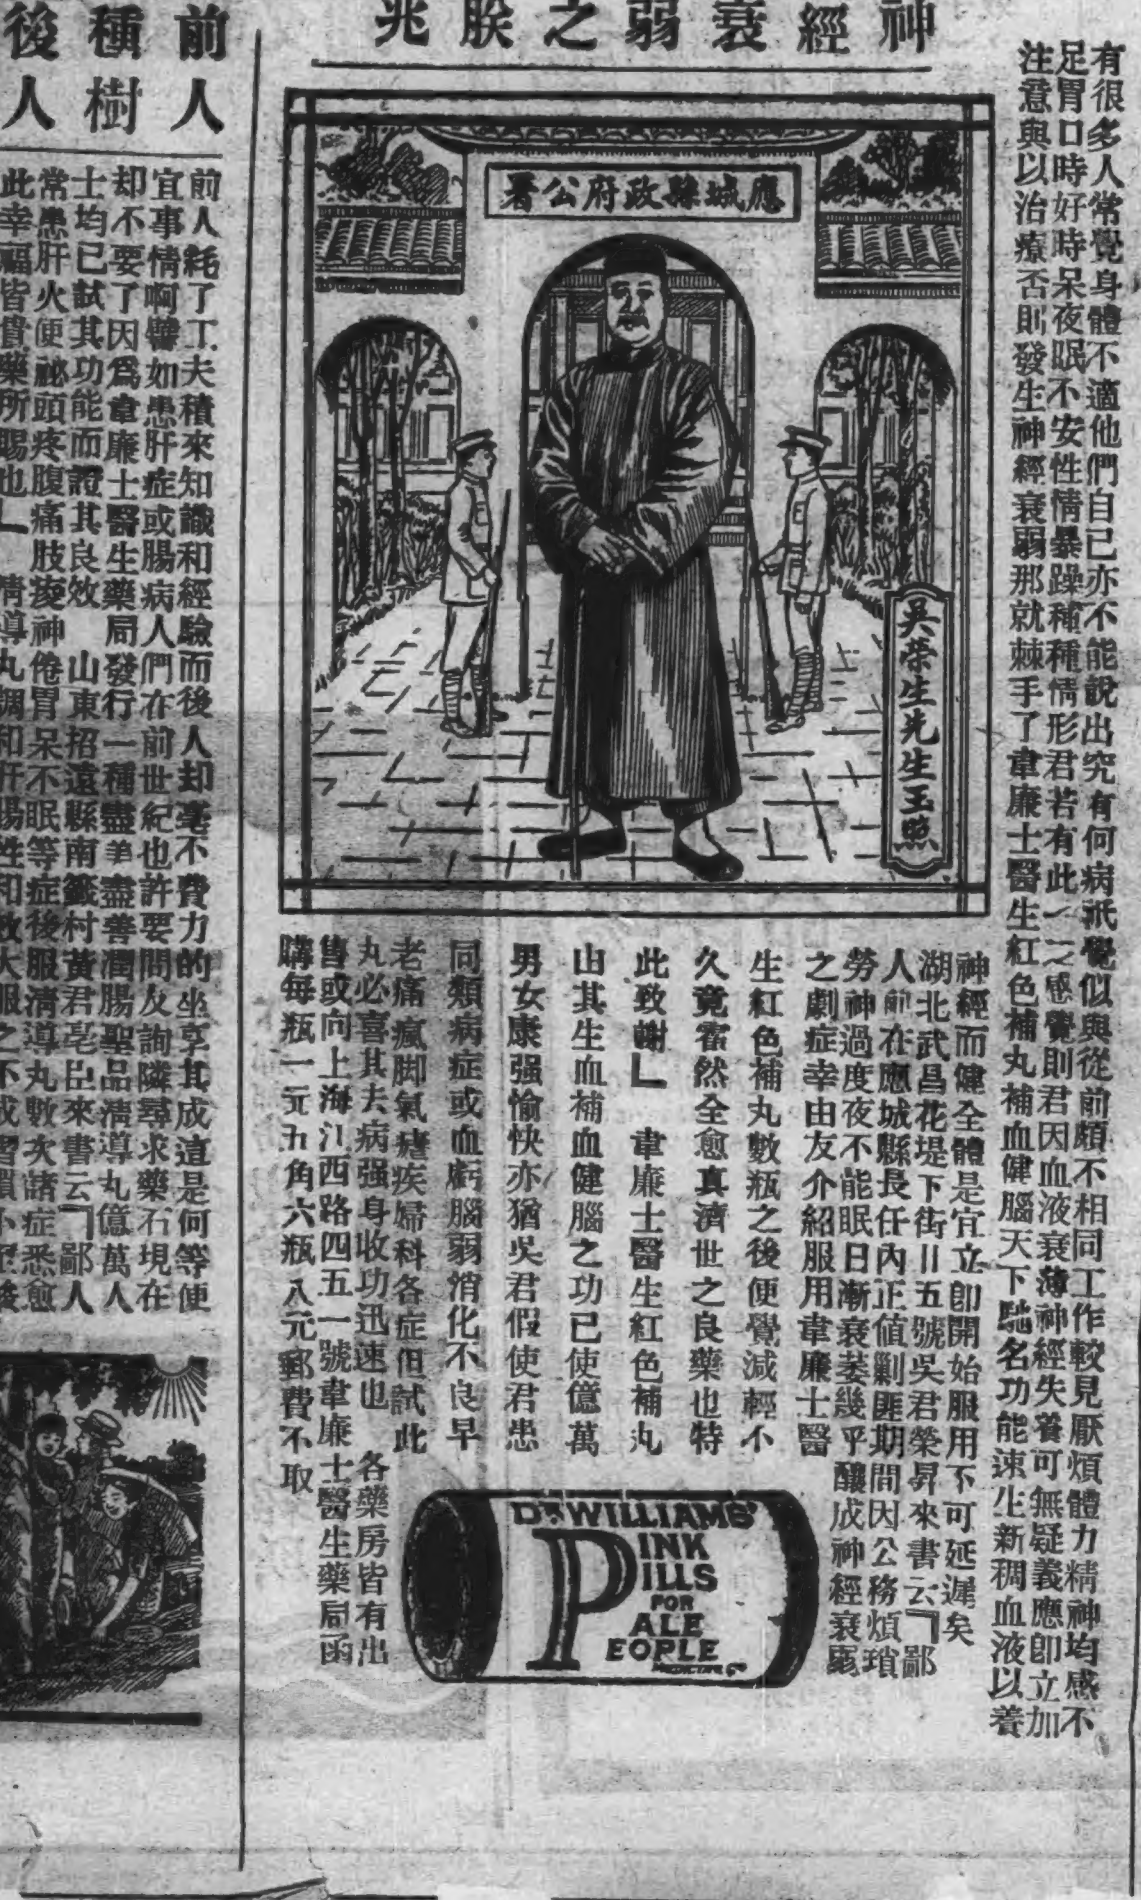 神經衰弱之朕兆
有很多人常覺身體不適他們自已亦不能說出究有何病祇覺似與從前頗不相同工作較見厭煩體力精神均感不
足胃口時好時呆夜眠不安性情暴躁種種情形君若有此一二感覺則君因血液衰薄神經失養可無疑義應卽立加
注意與以治療否則發生神經衰弱那就棘手了韋廉士醫生紅色補丸補血健腦天下馳名功能速生新稠血液以養
應城縣政府公署
吳榮生先生玉照
神經而健全體是宜立卽開始服用不可延遲矣
湖北武昌花堤下街廿五號吳君榮昇來書云「鄙
人前在應城縣長任內正值剿匪期間因公務煩瑣
勞神過度夜不能眠日漸衰萎幾乎釀成神經衰弱
之劇症幸由友介紹服用韋廉士醫
生紅色補丸數瓶之後便覺減輕不
久竟霍然全愈真濟世之良藥也特
此致謝」 韋廉士醫生紅色補丸
由其生血補血健腦之功已使億萬
男女康强愉快亦猶吳君假使君患
同類病症或血虧腦弱消化不良早
老痛瘋脚氣瘧疾婦科各症但試此
丸必喜其去病强身收功迅速也 各藥房皆有出
售或向上海江西路四五一號韋廉士醫生藥局函
購每瓶一元五角六瓶八元郵費不取
DR. WILLIAMS'
PINK
PILLS
FOR
PALE
PEOPLE
前人
種樹
後人
前人耗了工夫積來知識和經驗而後人却毫不費力的坐享其成這是何等便
宜事情啊譬如患肝症或腸病人們在前世紀也許要問友詢隣尋求藥石現在
却不要了因爲韋廉士醫生藥局發行一種盡美盡善潤腸聖品清導丸億萬人
士均已試其功能而證其良效 山東招遠縣南籤村黃君亳臣來書云「鄙人
常患肝火便祕頭疼腹痛肢痠神倦胃呆不眠等症後服清導丸數次諸症悉愈
此幸福皆貴藥所賜也」 清導丸調和肝腸性和效大服之不成習慣